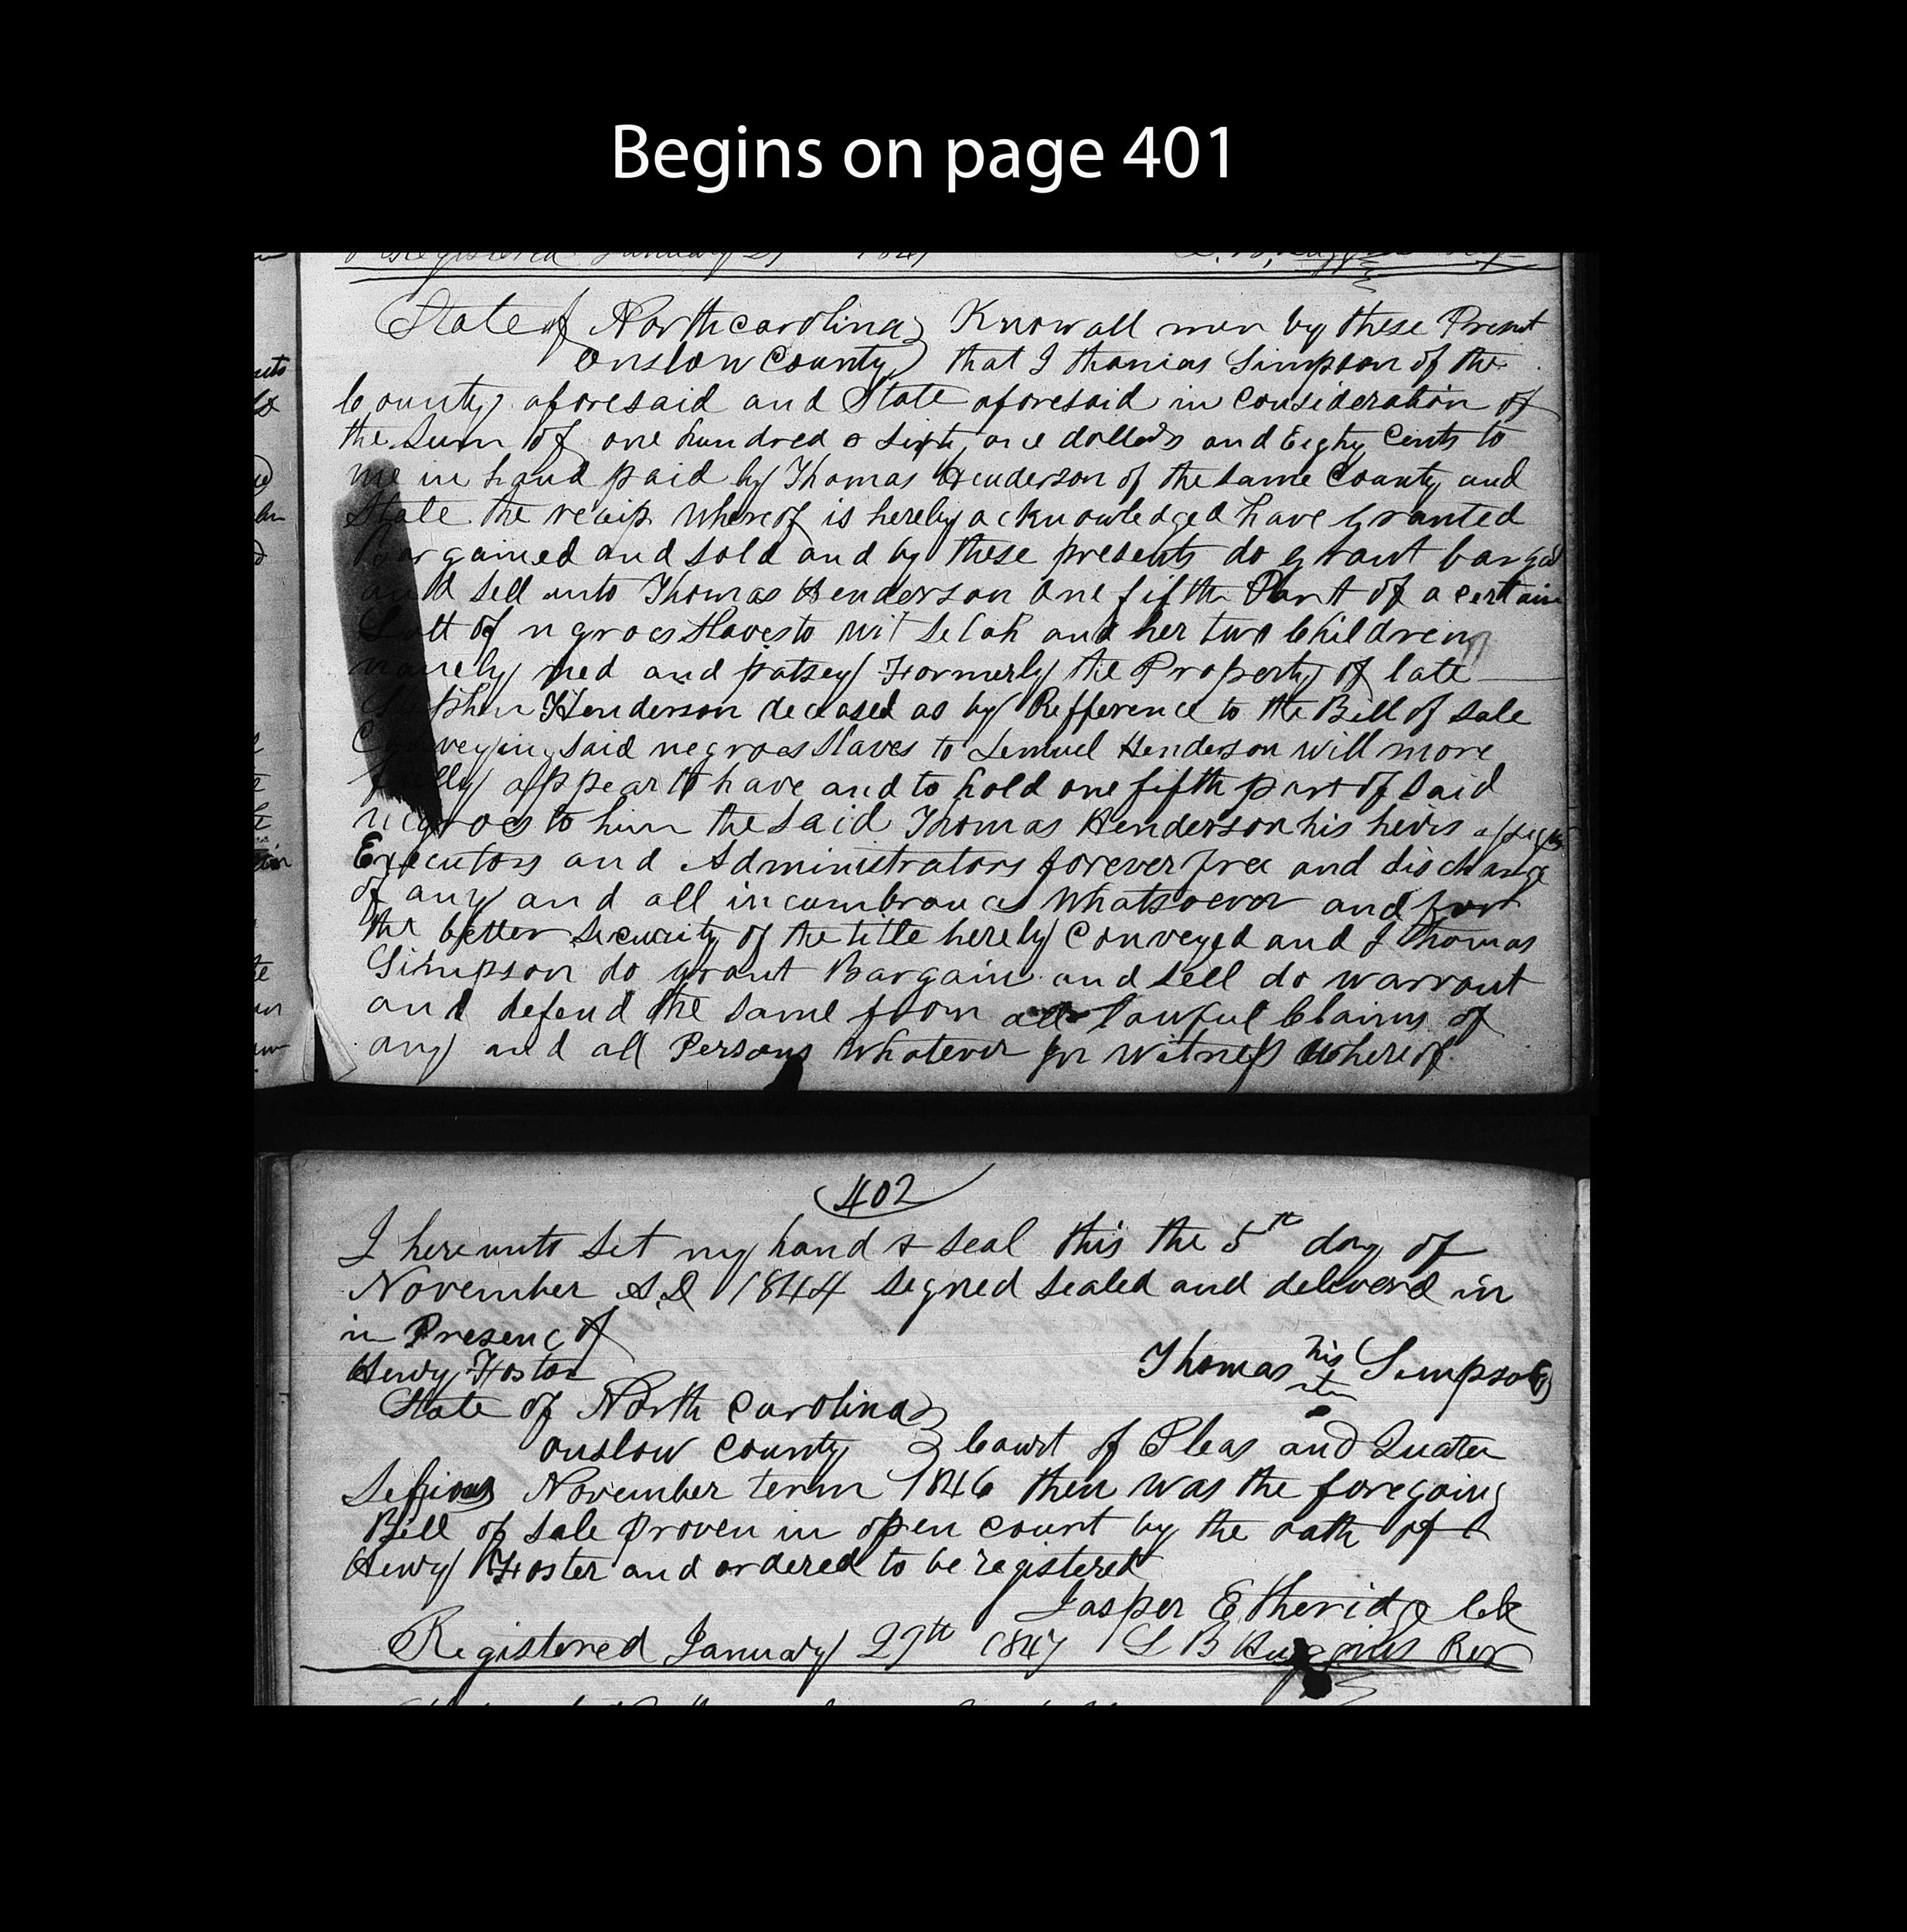 Begins on page 401
Registered January 1847
State of North Carolina Know all men by these Present
Onslow County that I Thomas Simpson of the
County aforesaid and State aforesaid in Consideration of
the Sum of one hundred & Sixty one dollars and Eighty Cents to
me in hand paid by Thomas Henderson of the Same County and
State the recip whereof is hereby acknowledged have granted
Bargained and sold and by these presents do grant bargai
and sell unto Thomas Henderson One fifth Part of a certain
Lott of negroes Slaves to wit Selah and her two Children
namely ned and patsey Formerly the Property of late
Stephen Henderson deceased as by Refference to the Bill of Sale
Conveying Said negroes Slaves to Lemuel Henderson will more
fully appear to have and to hold one fifth part of Said
negroes to him the Said Thomas Henderson his heirs assigns
Executors and Administrators forever free and discharge
of any and all incumbrances Whatsoever and for
the better Security of the title hereby Conveyed and I Thomas
Simpson do grant Bargain and sell do warrant
and defend the Same from all lawful Claims of
any and all Persons Whatever In Witness Whereof
402
I hereunto Set my hand & Seal this the 5th day of
November A.D 1844 signed sealed and deliverd in
in Presenc of
Henry Foster
Thomas his Simpson
State of North Carolina
Onslow County Court of Pleas and Quater
Sessions November term 1846 then was the foregoing
Bill of Sale Proven in open Court by the oath of
Henry Foster and ordered to be registered
Jasper Etheridge Clk
Registered January 29th 1847 L B Huggins Reg